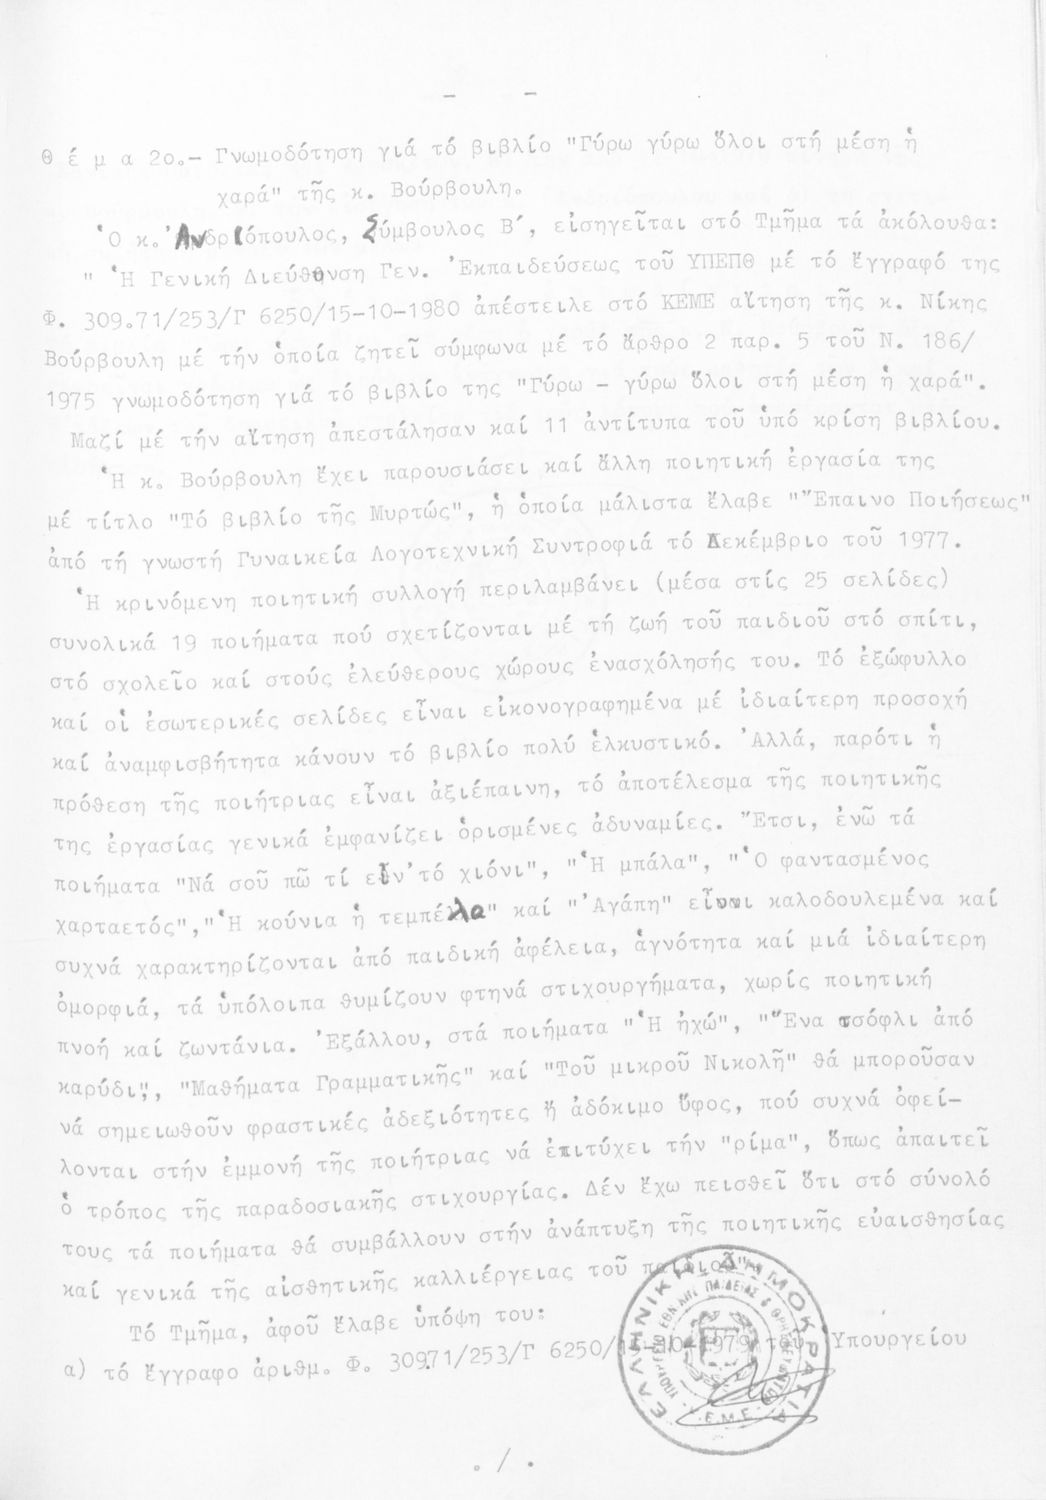 - -
Θ έ μ α 2ο.- Γνωμοδότηση γιά τό βιβλίο "Γύρω γύρω ὅλοι στή μέση ἡ
χαρά" τῆς κ. Βούρβουλη.
Ὁ κ. Ἀνδριόπουλος, Σύμβουλος Β', εἰσηγεῖται στό Τμῆμα τά ἀκόλουθα:
" Ἡ Γενική Διεύθυνση Γεν. Ἐκπαιδεύσεως τοῦ ΥΠΕΠΘ μέ τό ἔγγραφό της
Φ. 309.71/253/Γ 6250/15-10-1980 ἀπέστειλε στό ΚΕΜΕ αἴτηση τῆς κ. Νίκης
Βούρβουλη μέ τήν ὁποία ζητεῖ σύμφωνα μέ τό ἄρθρο 2 παρ. 5 τοῦ Ν. 186/
1975 γνωμοδότηση γιά τό βιβλίο της "Γύρω - γύρω ὅλοι στή μέση ἡ χαρά".
Μαζί μέ τήν αἴτηση ἀπεστάλησαν καί 11 ἀντίτυπα τοῦ ὑπό κρίση βιβλίου.
Ἡ κ. Βούρβουλη ἔχει παρουσιάσει καί ἄλλη ποιητική ἐργασία της
μέ τίτλο "Τό βιβλίο τῆς Μυρτώς", ἡ ὁποία μάλιστα ἔλαβε "Ἔπαινο Ποιήσεως"
ἀπό τή γνωστή Γυναικεία Λογοτεχνική Συντροφιά τό Δεκέμβριο τοῦ 1977.
Ἡ κρινόμενη ποιητική συλλογή περιλαμβάνει (μέσα στίς 25 σελίδες)
συνολικά 19 ποιήματα πού σχετίζονται μέ τή ζωή τοῦ παιδιοῦ στό σπίτι,
στό σχολεῖο καί στούς ἐλεύθερους χώρους ἐνασχόλησής του. Τό ἐξώφυλλο
καί οἱ ἐσωτερικές σελίδες εἶναι εἰκονογραφημένα μέ ἰδιαίτερη προσοχή
καί ἀναμφισβήτητα κάνουν τό βιβλίο πολύ ἑλκυστικό. Ἀλλά, παρότι ἡ
πρόθεση τῆς ποιήτριας εἶναι ἀξιέπαινη, τό ἀποτέλεσμα τῆς ποιητικῆς
της ἐργασίας γενικά ἐμφανίζει ὁρισμένες ἀδυναμίες. Ἔτσι, ἐνῶ τά
ποιήματα "Νά σοῦ πῶ τί εἶν' τό χιόνι", "Ἡ μπάλα", "Ὁ φαντασμένος
χαρταετός","Ἡ κούνια ἡ τεμπέλλα" καί "Ἀγάπη" εἶναι καλοδουλεμένα καί
συχνά χαρακτηρίζονται ἀπό παιδική ἀφέλεια, ἁγνότητα καί μιά ἰδιαίτερη
ὀμορφιά, τά ὑπόλοιπα θυμίζουν φτηνά στιχουργήματα, χωρίς ποιητική
πνοή καί ζωντάνια. Ἐξάλλου, στά ποιήματα "Ἡ ἠχώ", "Ἕνα τσόφλι ἀπό
καρύδι", "Μαθήματα Γραμματικῆς" καί "Τοῦ μικροῦ Νικολῆ" θά μποροῦσαν
νά σημειωθοῦν φραστικές ἀδεξιότητες ἤ ἀδόκιμο ὕφος, πού συχνά ὀφεί-
λονται στήν ἐμμονή τῆς ποιήτριας νά ἐπιτύχει τήν "ρίμα", ὅπως ἀπαιτεῖ
ὁ τρόπος τῆς παραδοσιακῆς στιχουργίας. Δέν ἔχω πεισθεῖ ὅτι στό σύνολό
τους τά ποιήματα θά συμβάλλουν στήν ἀνάπτυξη τῆς ποιητικῆς εὐαισθησίας
καί γενικά τῆς αἰσθητικῆς καλλιέργειας τοῦ παιδιοῦ".
Τό Τμῆμα, ἀφοῦ ἔλαβε ὑπόψη του:
α) τό ἔγγραφο ἀριθμ. Φ. 309.71/253/Γ 6250/15-10-1979 τοῦ Ὑπουργείου
ΕΛΛΗΝΙΚΗ ΔΗΜΟΚΡΑΤΙΑ
ΥΠΟΥΡΓΕΙΟ ΕΘΝΙΚΗΣ ΠΑΙΔΕΙΑΣ & ΘΡΗΣΚΕΥΜΑΤΩΝ
Κ.Ε.Μ.Ε.
./.